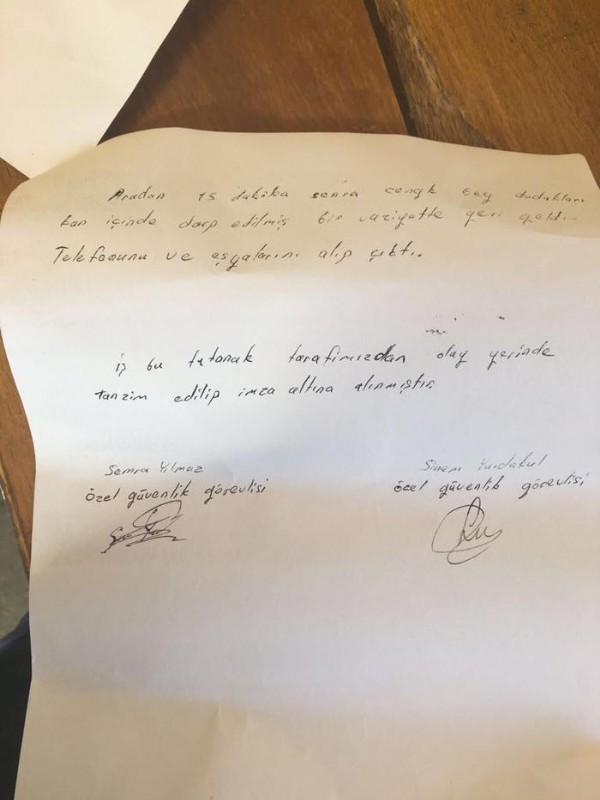 Aradan 15 dakika sonra cengk bey dudakları
kan içinde darp edilmiş bir vaziyette geri geldi.
Telefonunu ve eşyalarını alıp çıktı.
iş bu tutanak tarafımızdan olay yerinde
tanzim edilip imza altına alınmıştır
Semra Yılmaz
özel güvenlik görevlisi
Sinem Yurdakul
özel güvenlik görevlisi